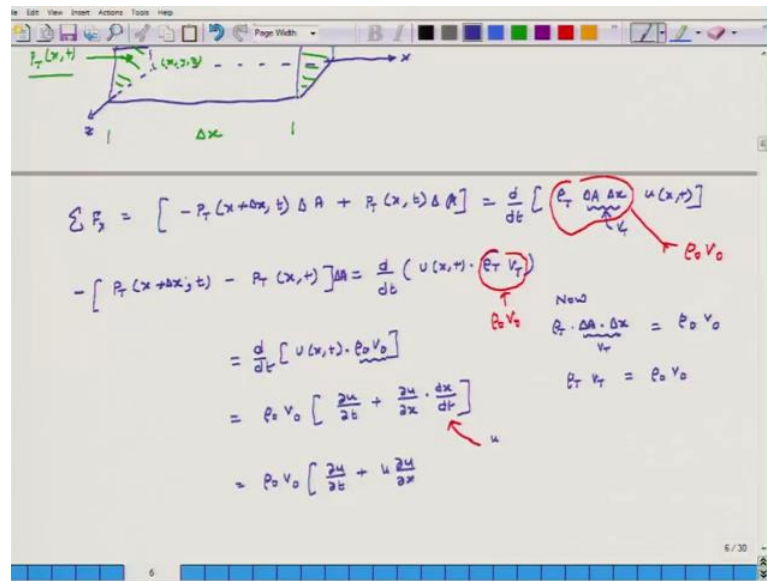 Edit View Insert Actions Tools Help
Page Width
B I
P_T (x,t) (x,y,z) x
z Δx
Σ F_x = [ -P_T (x+Δx, t) Δ A + P_T (x,t) Δ A ] = d/dt [ ρ_T ΔA Δx u(x,t) ]
V_T ρ_0 V_0
- [ P_T (x+Δx, t) - P_T (x,t) ] ΔA = d/dt ( u(x,t) · ρ_T V_T )
ρ_0 V_0
Now
= d/dt [ u(x,t) · ρ_0 V_0 ]
ρ_T · ΔA · Δx = ρ_0 V_0
V_T
= ρ_0 V_0 [ ∂u/∂t + ∂u/∂x · dx/dt ]
ρ_T V_T = ρ_0 V_0
u
= ρ_0 V_0 [ ∂u/∂t + u ∂u/∂x
6/30
6